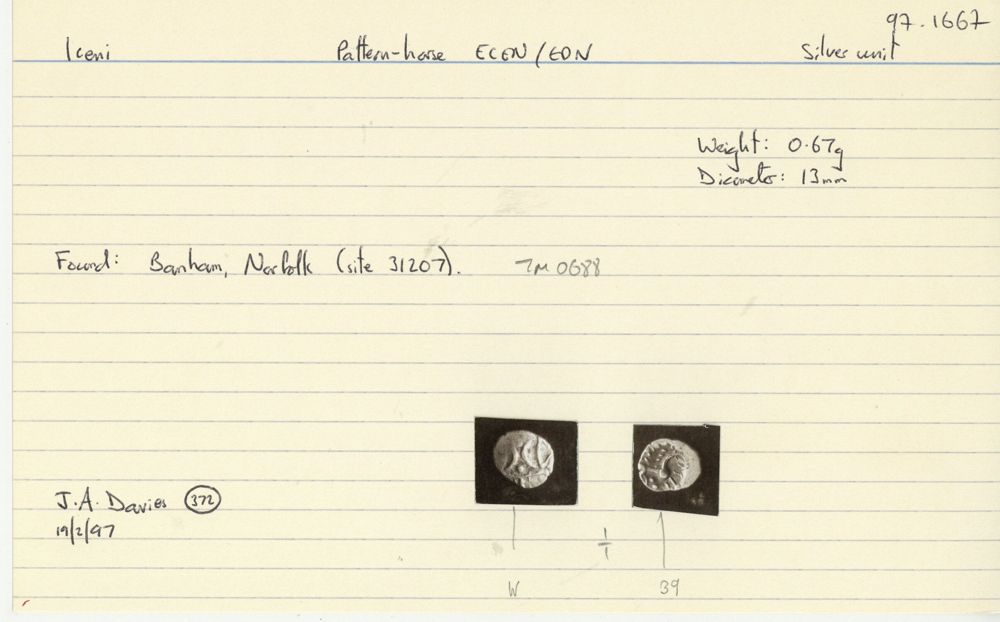 97.1667
Iceni Pattern-horse ECEN/EDN Silver unit
Weight: 0.67g
Diameter: 13mm
Found: Banham, Norfolk (site 31207). TM 0688
J.A. Davies 372
19/2/97
1/1
W 39